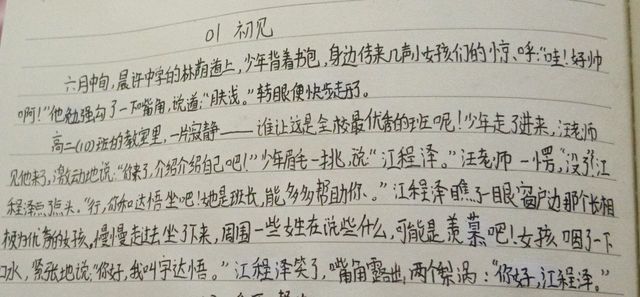 01 初见
六月中旬，晨许中学的林荫道上，少年背着书包，身边传来几声小女孩们的惊、呼：“哇！好帅
啊！”他勉强勾了一下嘴角，说道：“肤浅。”转眼便快步走开了。
高二（10）班的教室里，一片寂静——谁让这是全校最优秀的班呢！少年走了进来，汪老师
见他来了，激动地说：“你来了，介绍介绍自己吧！”少年眉毛一挑，说“江程泽。”汪老师一愣，“没了？”江
程泽点点头。“行，你和达悟坐吧！她是班长，能多多帮助你、。”江程泽瞧了一眼窗户边那个长相
极为优秀的女孩，慢慢走过去坐了下来，周围一些女生在说些什么，可能是羡慕吧！女孩咽了一下
口水，紧张地说：“你好，我叫宇达悟。”江程泽笑了，嘴角露出两个梨涡：“你好，江程泽。”